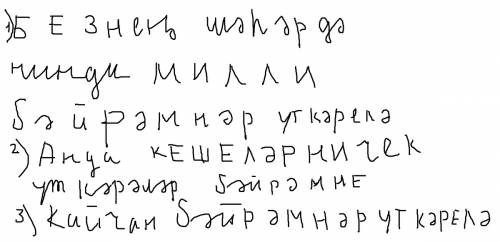 1) БЕЗнең шәһәрдә
нинди милли
бәйрәмнәр уткәрелә
2) Анда кешеләр ничек
уткәрәләр бәйрәмне
3) Кайчан бәйрәмнәр уткәрелә